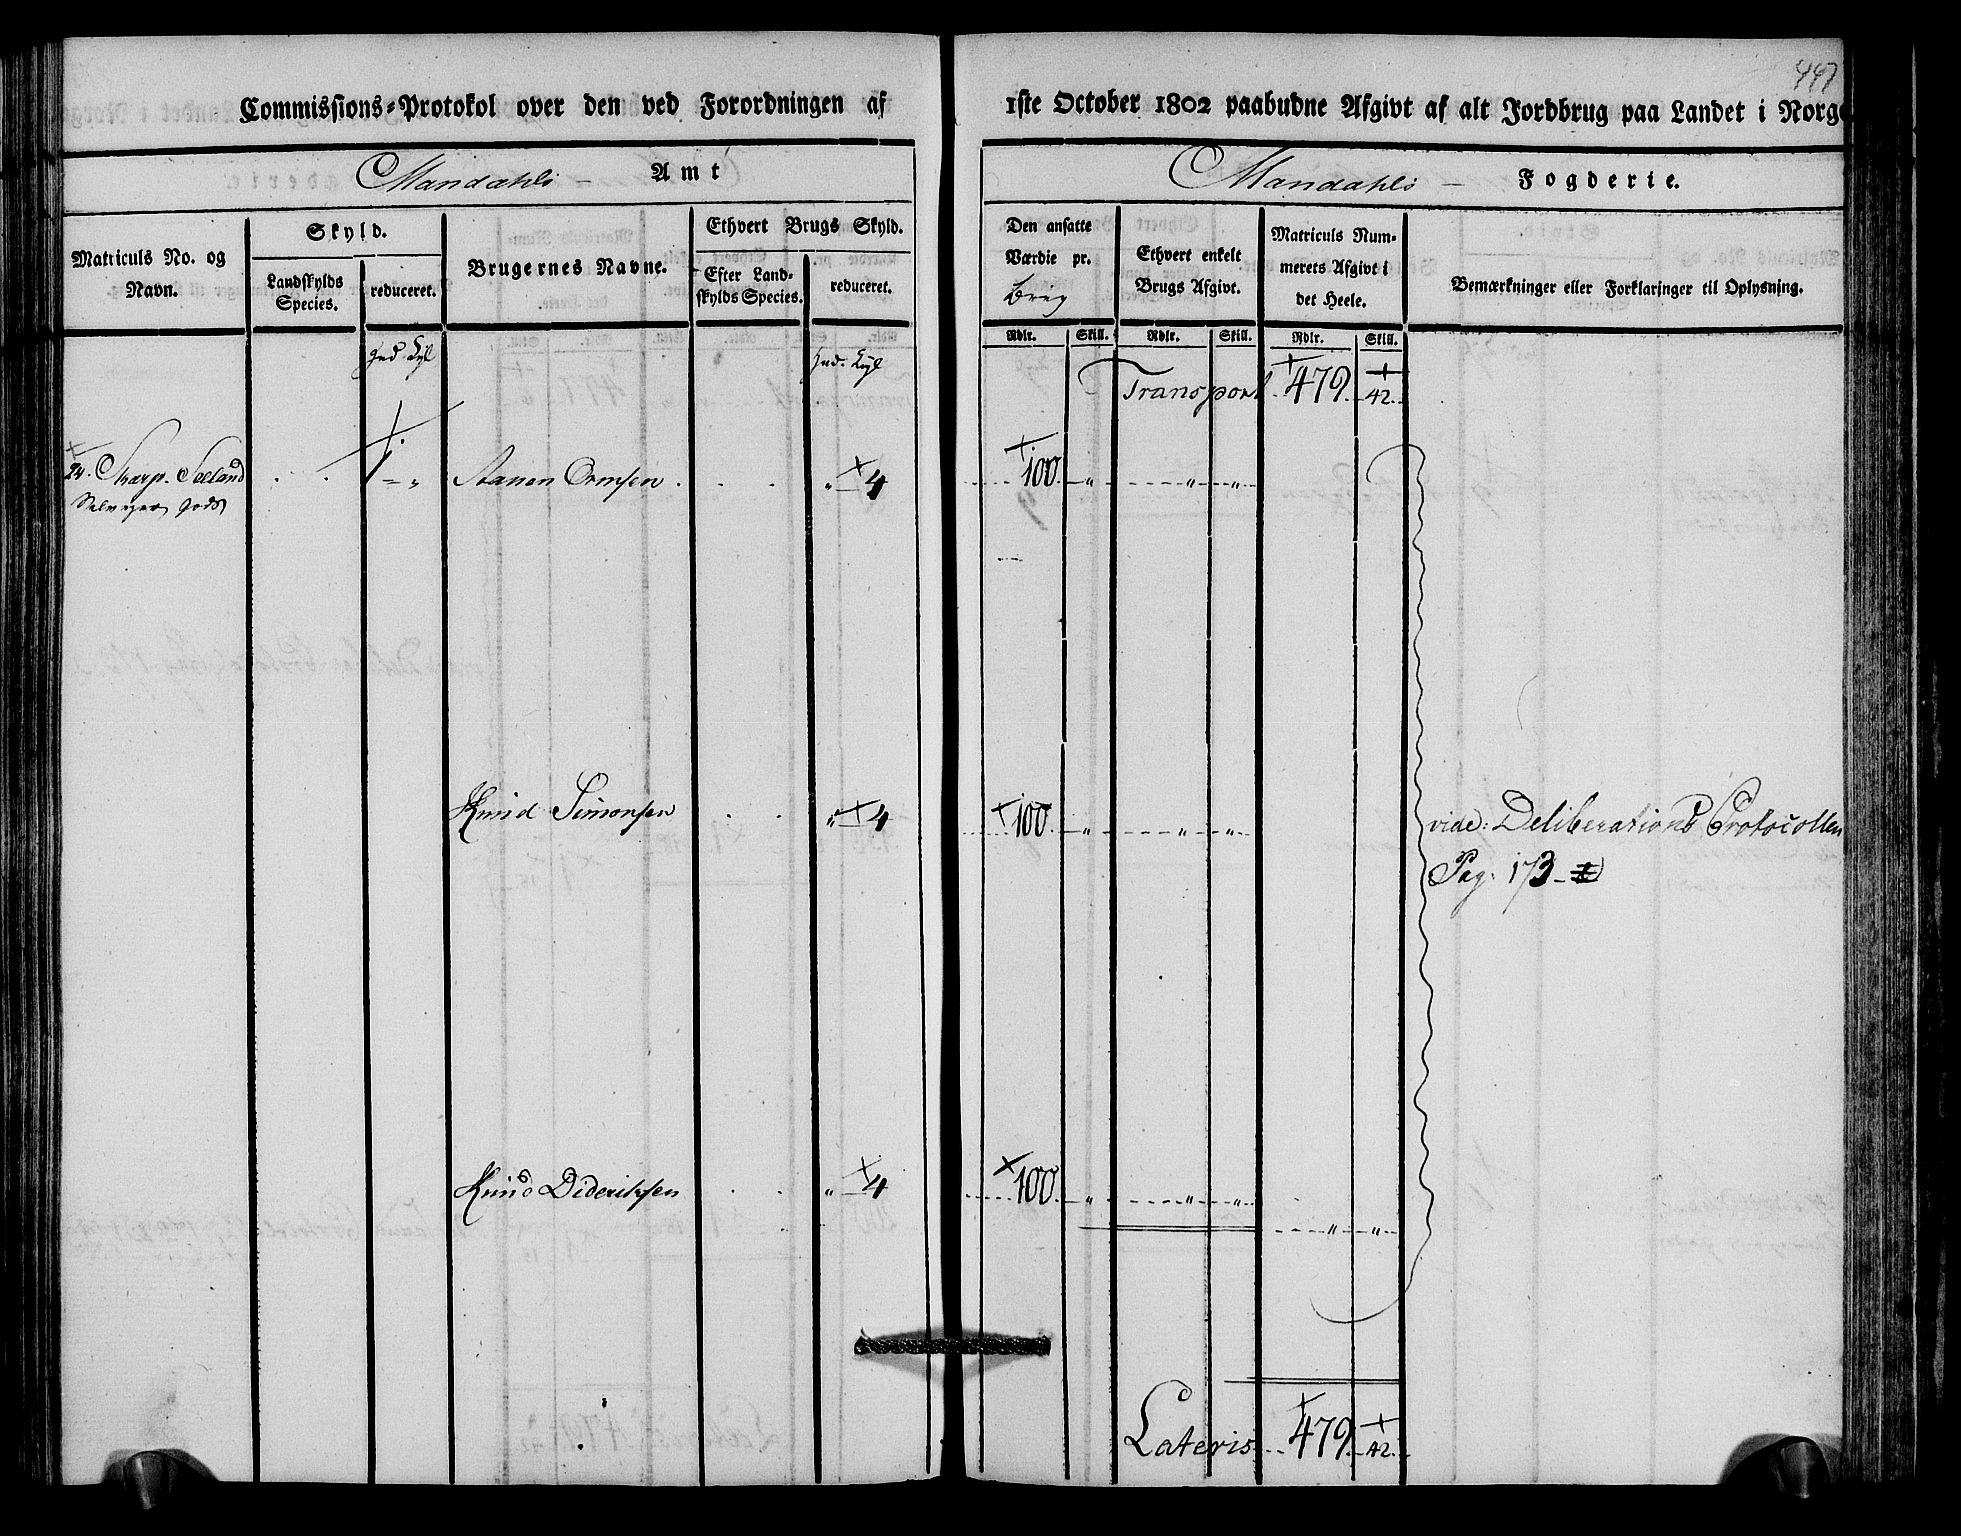 447
Commissions-Protokol over den ved Forordningen af 1ste October 1802 paabudne Afgivt af alt Jordbrug paa Landet i Norge
Mandahls - Amt
Mandahls - Fogderie.
Matriculs No. og Navn.
Skyld.
Landskylds Species.
reduceret.
Brugernes Navne.
Ethvert Brugs Skyld.
Efter Landskylds Species.
reduceret.
Den ansatte Værdie pr.
Brug
Ethvert enkelt Brugs Afgivt.
Matriculs Nummerets Afgivt i det Heele.
Bemærkninger eller Forklaringer til Oplysning.
Rdlr. Skill. Rdlr. Skill. Rdlr. Skill.
Transport 479. 42.
24. Skarp. Sæland 1 - „ Aanen Ormsen „ 4 100 „ „ „
Selveyer Gods
Knud Simonsen „ 4 100 „ „ „ vide: Deliberations Protocollen
Pag: 173 -
Knud Dideriksen „ 4 100 „ „ „
„ „
Lateris 479. 42.